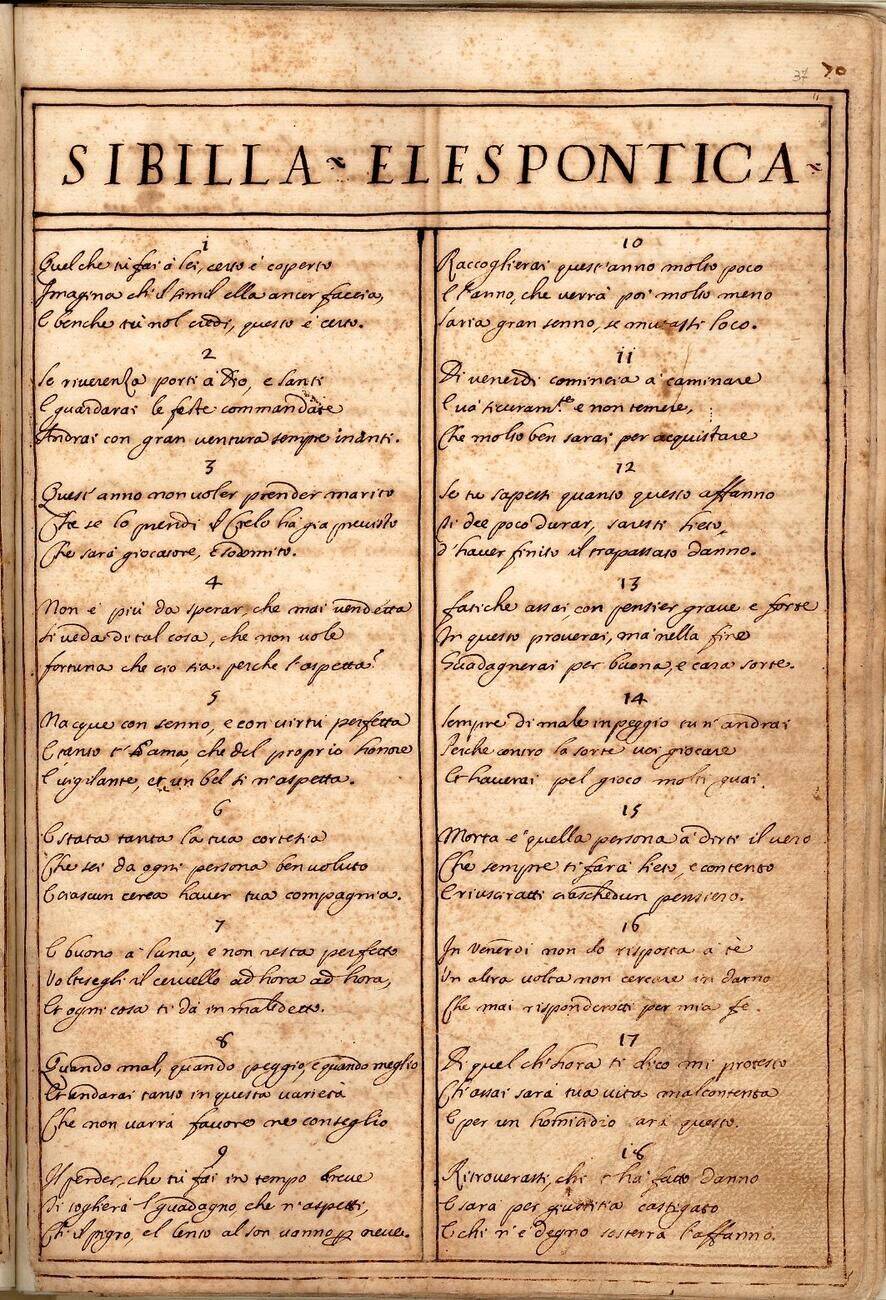 37 70
SIBILLA ~ ELESPONTICA ~
1
Quel che tu fai à lei, certo é coperto
Imagina ch'il simil ella ancor faccia,
E benche tu nol credi, questo é certo.
2
Se riverenza porti à Dio, e santi
E guardarai le feste commandate
Andrai con gran ventura sempre inanti.
3
Quest'anno non voler prender marito
Che se lo prendi il Cielo há gia previsto
Che sará giocatore, e sodomito.
4
Non é piú da sperar, che mai vendetta
Si veda di tal cosa, che non vole
fortuna che cio sia. perche l'aspetta?
5
Nacque con senno, e con virtú perfetta
E tanto t'ama, che del proprio honore
E vigilante, et un bel si n'aspetta.
6
E stata tanta la tua cortesia
Che sei da ogni persona ben voluto
E ciascun cerca haver tua compagnia.
7
E buono à luna, e non resta perfecto
Voltesegli il cervello ad hora ad hora,
Et ogni cosa ti dá in maledetto.
8
Quando mal, quando peggio, e quando meglio
Et andarai tanto in questa varietá
Che non varrá favore ne conseglio
9
Il perder, che tú fai in tempo breve
Di togliera l'guadagno, che n'aspetti,
Ch'il pigro, el lento al son vanno p neve.
10
Raccoglierai quest'anno molto poco
E l'anno, che verrá poi molto meno
saria gran senno, se mutasti loco.
11
Di venerdi comincia à caminare
E vá sicuram.te e non temere,
Che molto ben sarai per acquistare
12
Se tu sapesti quanto questo affanno
Ti dee poco durar, saresti lieto,
d'haver finito il trapassato danno.
13
fatiche assai, con pensier grave e forte
In questo proverai, má nella fine
Guadagnerai per buona, e cara sorte.
14
Sempre di male in peggio tu n'andrai
Perche contro la sorte voi giocare
Et haverai pel gioco molti guai.
15
Morta é quella persona à dirti il vero
Che sempre ti fará lieto, e contento
E riusciratti ciaschedun pensiero.
16
In Venerdi non do risposta à tè
Un altra volta non cercare in darno
Che mai risponderotti per mia fe.
17
Di quel ch'hora ti dico mi protesto
Ch'assai sará tua vita mal contenta
E per un homicidio ará questo.
18
Ritroverassi, chi t'há fatto danno
E sará per giustitia castigato
E chi n'é degno sosterrá l'affanno.